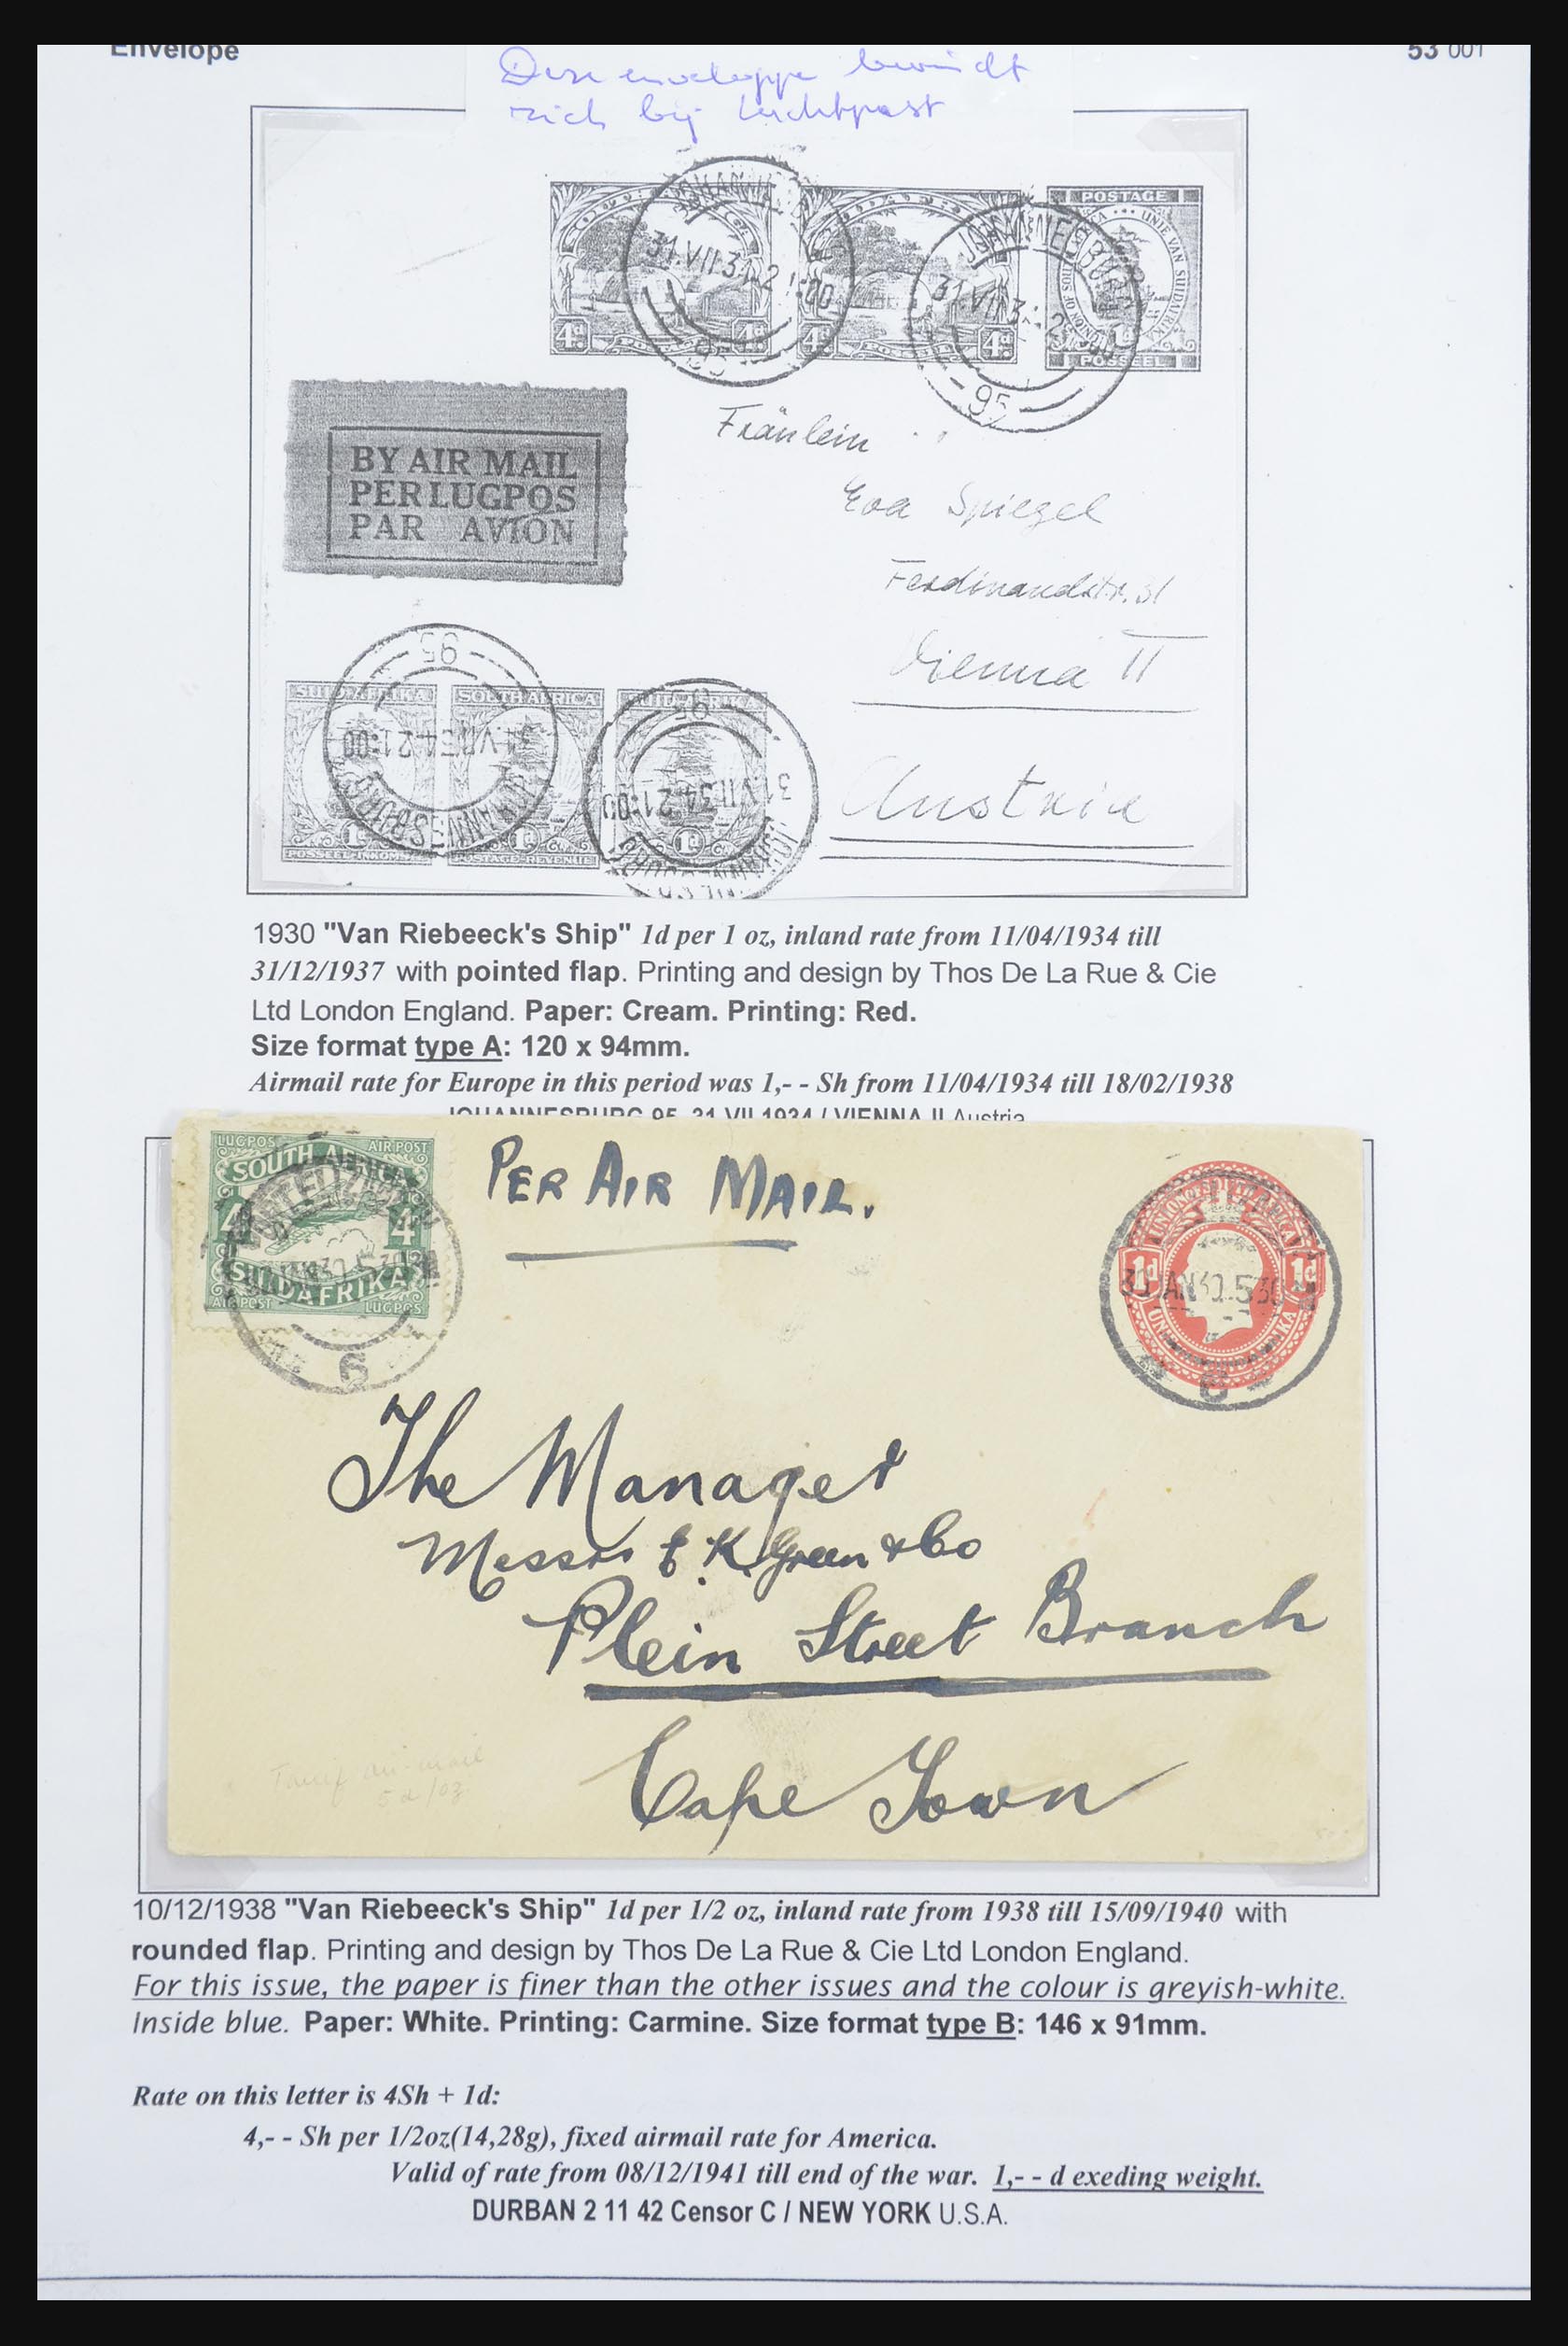 Envelope
53 001
Deze enveloppe bevindt
zich bij Luchtpost
POSTAGE
UNIE VAN SUIDAFRIKA
POSSEEL
4d 4d 4d 4d 1d
JOHANNESBURG
31.VII 34-21:00
95
JOHANNESBURG
31.VII 34-21:00
95
BY AIR MAIL
PER LUGPOS
PAR AVION
Fräulein
Eva Spiegel
Ferdinandstr. 31
Vienna II
Austria
SUIDAFRIKA SOUTH AFRICA SUIDAFRIKA
95
31.VII 34 21:00
JOHANNESBURG
95
31.VII 34 21:00
JOHANNESBURG
1d 1d 1d
POSSEEL-INKOMSTE POSTAGE-REVENUE
1930 "Van Riebeeck's Ship" 1d per 1 oz, inland rate from 11/04/1934 till
31/12/1937 with pointed flap. Printing and design by Thos De La Rue & Cie
Ltd London England. Paper: Cream. Printing: Red.
Size format type A: 120 x 94mm.
Airmail rate for Europe in this period was 1,- - Sh from 11/04/1934 till 18/02/1938
JOHANNESBURG 95 31 VII 1934 / VIENNA II Austria
LUGPOS AIR POST
SOUTH AFRICA
4d 4d
SUIDAFRIKA
AIR POST LUGPOS
6
PER AIR MAIL.
1d 1d
30 JAN 30. 5 30
The Manager
Messrs E. K. Green & Co
Plein Street Branch
Cape Town
Tarif air-mail
5d/oz
10/12/1938 "Van Riebeeck's Ship" 1d per 1/2 oz, inland rate from 1938 till 15/09/1940 with
rounded flap. Printing and design by Thos De La Rue & Cie Ltd London England.
For this issue, the paper is finer than the other issues and the colour is greyish-white.
Inside blue. Paper: White. Printing: Carmine. Size format type B: 146 x 91mm.
Rate on this letter is 4Sh + 1d:
4,- - Sh per 1/2oz(14,28g), fixed airmail rate for America.
Valid of rate from 08/12/1941 till end of the war. 1,- - d exeding weight.
DURBAN 2 11 42 Censor C / NEW YORK U.S.A.